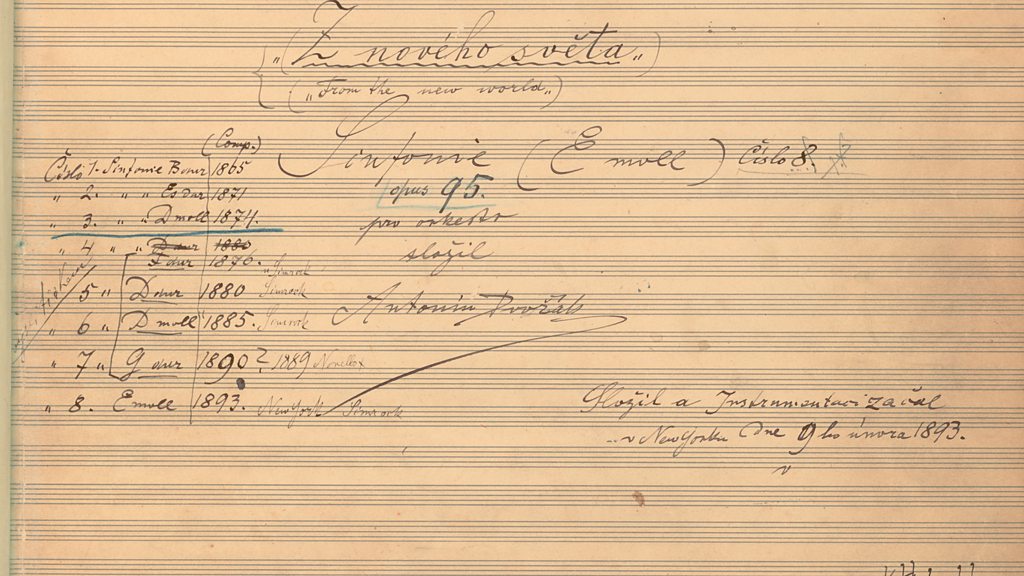 "Z nového světa"
("From the new world")
Sinfonie (E moll) Číslo 8.
opus 95.
pro orkestr
složil
Antonín Dvořák
(Comp.)
Číslo 1. Sinfonie B dur 1865
" 2. " " Es dur 1871
" 3. " " D moll 1874.
" 4 " " D dur 1880
F dur 1876. "Simrock
" 5 " D dur 1880 Simrock
" 6 " D moll 1885. Simrock
" 7 " G dur 1890? 1889 Novello
" 8. E moll 1893. New York Simrock
Složil a Instrumentaci začal
v New Yorku dne 9ho února 1893.